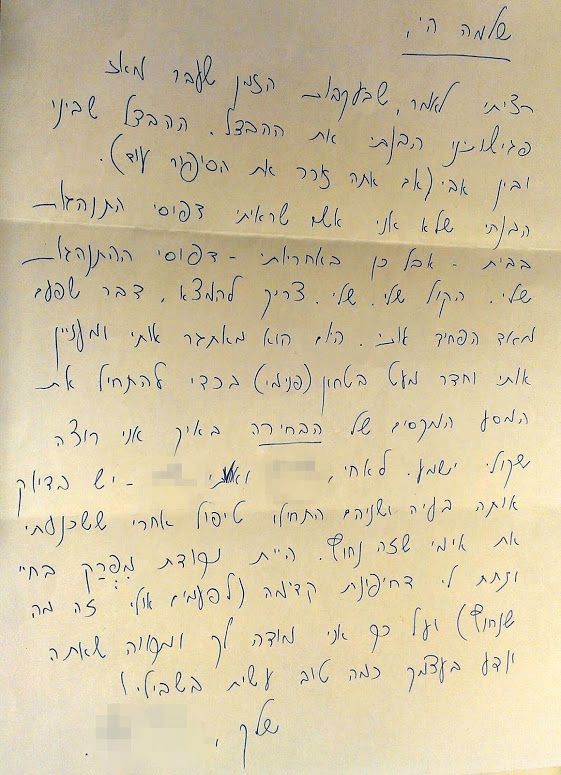 שלמה הי,
רציתי לאמר, שבעקבות הזמן שעבר מאז
פגישותינו הבנתי את ההבדל. ההבדל שביני
ובין אבי (אב אתה זוכר את הסיפור עוד).
הבנתי שלא אני אשם שראיתי דפוסי התנהגות
בבית - אבל כן באחריותי - דפוסי ההתנהגות
שלי. הקול שלי. שלי. צריך להמצא. דבר שפעם
מאוד הפחיד אותי. היום הוא מאתגר אותי ומעניין
אותי וחדר מעט בטחון (פנימי) בכדי להתחיל את
המסע המקסים של הבחירה באיך אני רוצה
שקולי ישמע. לאחי, ואחותי - יש בדיוק
אותה בעיה ושניהם התחילו טיפול אחרי ששכנעתי
את אימי שזה נחוץ. היית נקודת מִפְרָק בחיי
ונתת לי דחיפונת קדימה (לפעמים אולי זה מה
שנחוץ) ועל כך אני מודה לך ומקווה שאתה
יודע בעצמך כמה טוב עשית בשבילי!
שלך,